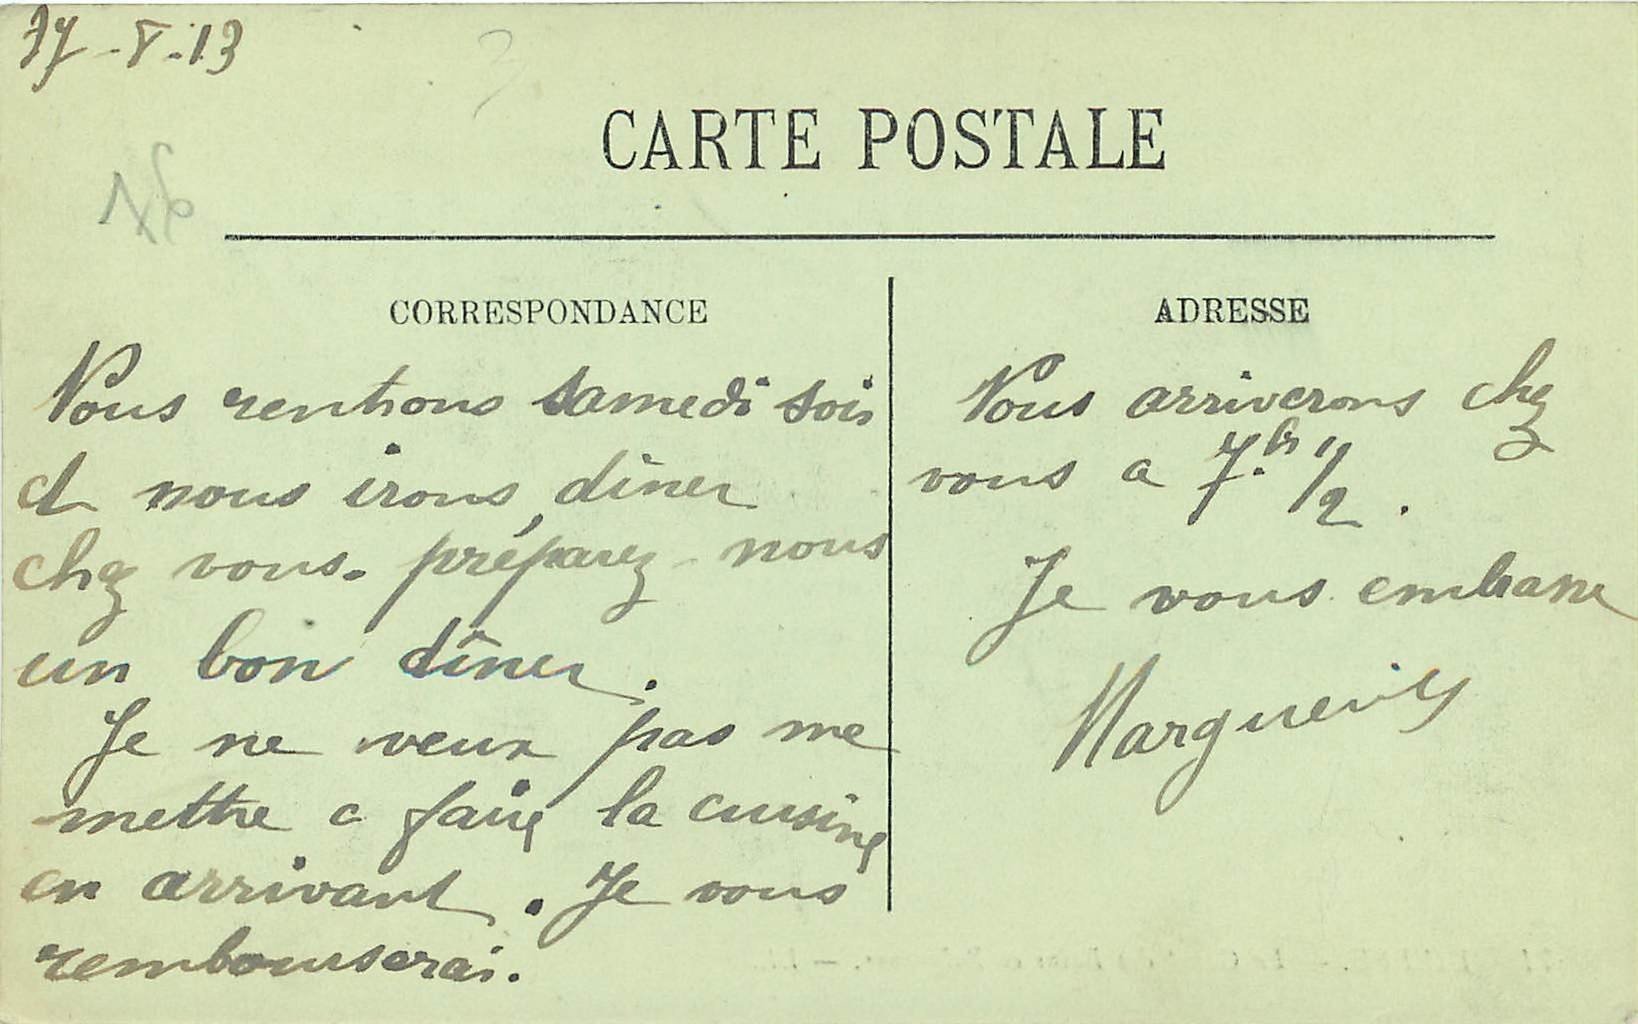 -8-13
CARTE POSTALE
CORRESPONDANCE
Nous rentrons samedi soir
et nous irons dîner
chez vous. préparez-nous
un bon dîner.
Je ne veux pas me
mettre a faire la cuisine
en arrivant. Je vous
rembourserai.
ADRESSE
Nous arriverons chez
vous a 7h 1/2.
Je vous embrasse
Marguerite